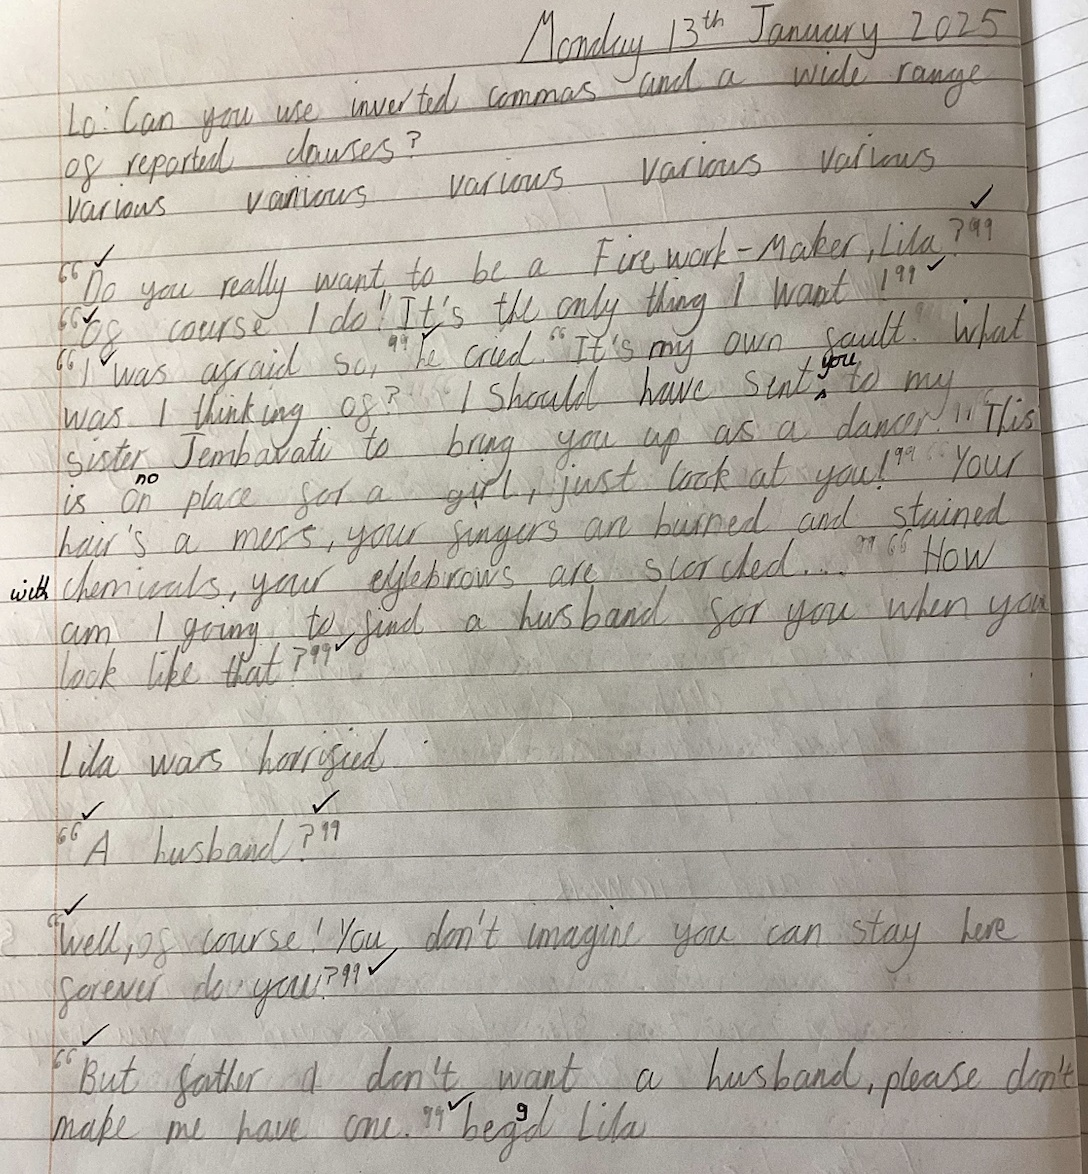 Monday 13th January 2025
Lo: Can you use inverted commas and a wide range
of reported clauses?
Various various various various various
“Do you really want to be a Firework-Maker, Lila?”
“Of course I do! It's the only thing I want!”
“I was afraid so,” he cried. “It's my own fault. What
was I thinking of? I should have sent you to my
sister Jembavati to bring you up as a dancer. This
is no place for a girl, just look at you!” Your
hair's a mess, your fingers are burned and stained
with chemicals, your eyebrows are scorched...” “How
am I going to find a husband for you when you
look like that?”
Lila wars horrified.
“A husband?”
“Well, of course! You don't imagine you can stay here
forever do you?”
“But father I don't want a husband, please don't
make me have one.” beggd Lila